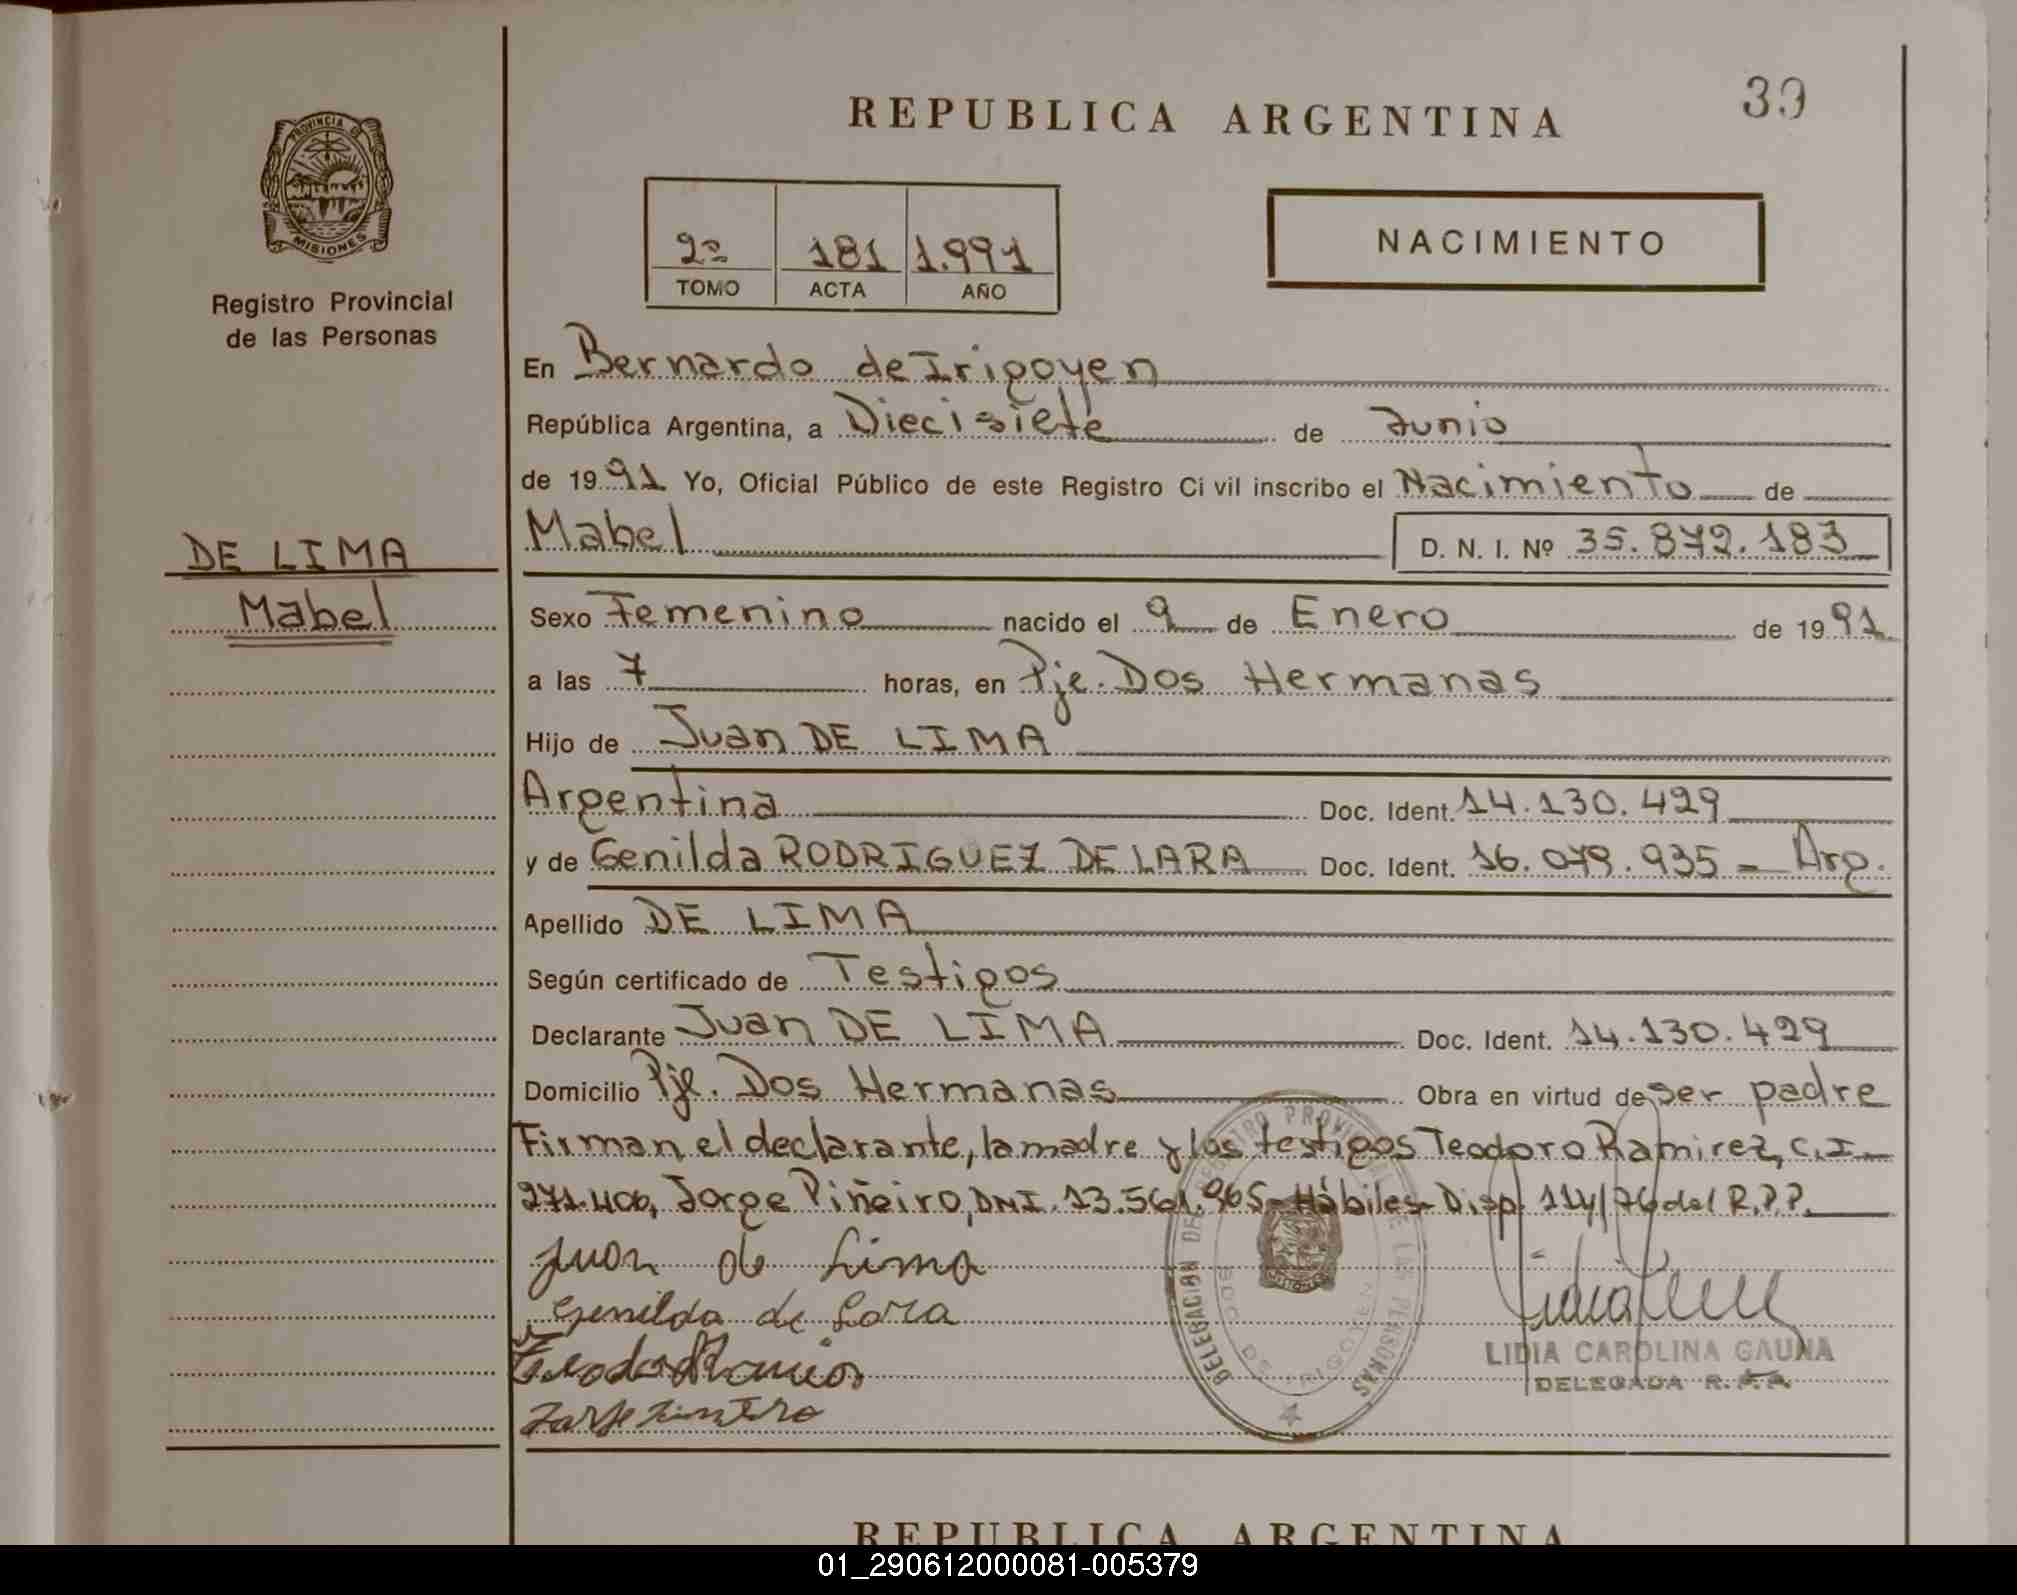 REPUBLICA ARGENTINA
39
PROVINCIA DE
MISIONES
Registro Provincial
de las Personas
2º 181 1.991
TOMO ACTA AÑO
NACIMIENTO
En Bernardo de Irigoyen
República Argentina, a Diecisiete de Junio
de 1991 Yo, Oficial Público de este Registro Civil inscribo el Nacimiento de
Mabel D. N. I. Nº 35.872.183
DE LIMA
Mabel
Sexo Femenino nacido el 9 de Enero de 1991
a las 7 horas, en Pje. Dos Hermanas
Hijo de Juan DE LIMA
Argentina Doc. Ident. 14.130.429
y de Genilda RODRIGUEZ DE LARA Doc. Ident. 16.079.935 - Arg.
Apellido DE LIMA
Según certificado de Testigos
Declarante Juan DE LIMA Doc. Ident. 14.130.429
Domicilio Pje. Dos Hermanas Obra en virtud de ser padre
Firman el declarante, la madre y los testigos Teodoro Ramirez, C.I.
271.406, Jorge Piñeiro, DNI. 13.561.965- Hábiles- Disp. 114/76 del R.P.P.
Juan de Lima
Genilda de Lara
LIDIA CAROLINA GAUNA
DELEGADA R.P.P.
DELEGACION DE REGISTRO PROVINCIAL DE LAS PERSONAS
BDO. DE IRIGOYEN
REPUBLICA ARGENTINA
01_290612000081-005379